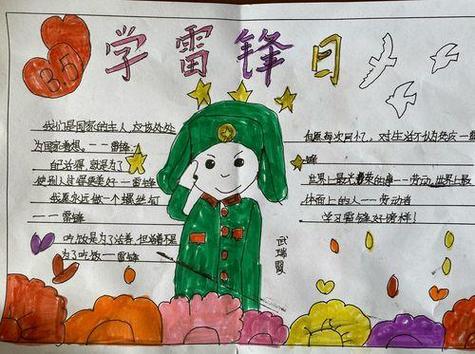 学雷锋日
35
我们是国家的主人,应该处处
为国家着想。——雷锋
自己活着,就是为了
使别人过得更美好——雷锋
我愿永远做一个螺丝钉
——雷锋
吃饭是为了活着,但活着不是
为了吃饭——雷锋
但愿每次回忆,对生活都不感到内疚——雷
锋
世界上最光荣的事——劳动。世界上最
体面上的人——劳动者
学习雷锋好榜样!
武瑞